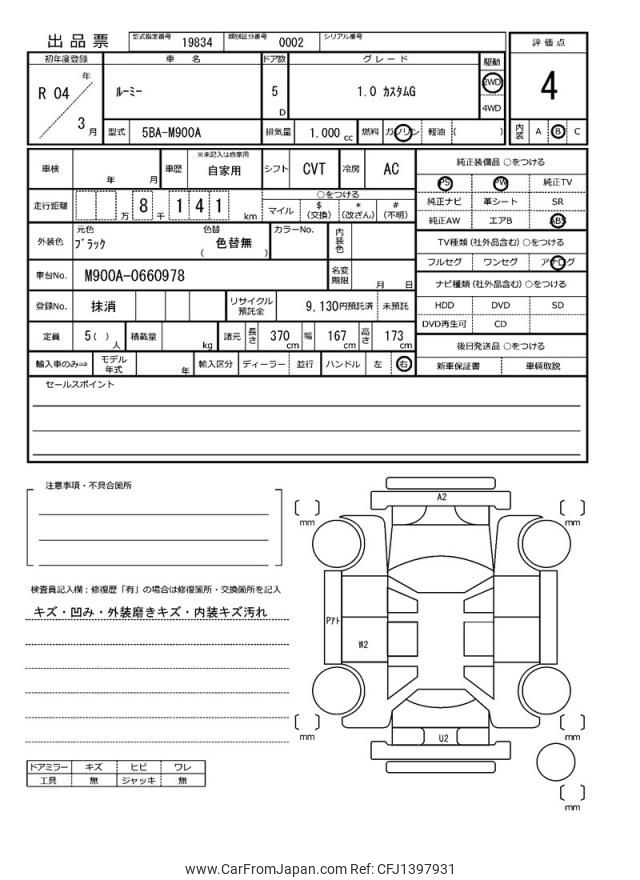 出品票
型式指定番号 19834 類別区分番号 0002 シリアル番号
初年度登録 車名 ドア数 グレード 駆動 評価点
R 04 年 3 月 ルーミー 5 D 1.0 カスタムG 2WD 4WD 4
型式 5BA-M900A 排気量 1.000 cc 燃料 ガソリン 軽油 ( ) 内装 A B C
車検 年 月 車歴 ※未記入は自家用 自家用 シフト CVT 冷房 AC
走行距離 万 8 千 1 4 1 km ○をつける
マイル $ (交換) * (改ざん) # (不明)
外装色 元色 ブラック 色替 色替無 ( ) カラーNo. 内装色
車台No. M900A-0660978 名変期限 月 日
登録No. 抹消 リサイクル預託金 9,130円預託済 未預託
定員 5 ( ) 人 積載量 kg 諸元 長さ 370 cm 幅 167 cm 高さ 173 cm
輸入車のみ⇒ モデル年式 年 輸入区分 ディーラー 並行 ハンドル 左 右
純正装備品 ○をつける
PS PW 純正TV
純正ナビ 革シート SR
純正AW エアB ABS
TV種類 (社外品含む) ○をつける
フルセグ ワンセグ アナログ
ナビ種類 (社外品含む) ○をつける
HDD DVD SD
DVD再生可 CD
後日発送品 ○をつける
新車保証書 車輌取説
セールスポイント
注意事項・不具合箇所
検査員記入欄：修復歴「有」の場合は修復箇所・交換箇所を記入
キズ・凹み・外装磨きキズ・内装キズ汚れ
ドアミラー キズ ヒビ ワレ
工具 無 ジャッキ 無
A2
mm
mm
Pアト
W2
mm
mm
U2
mm
www.CarFromJapan.com Ref: CFJ1397931